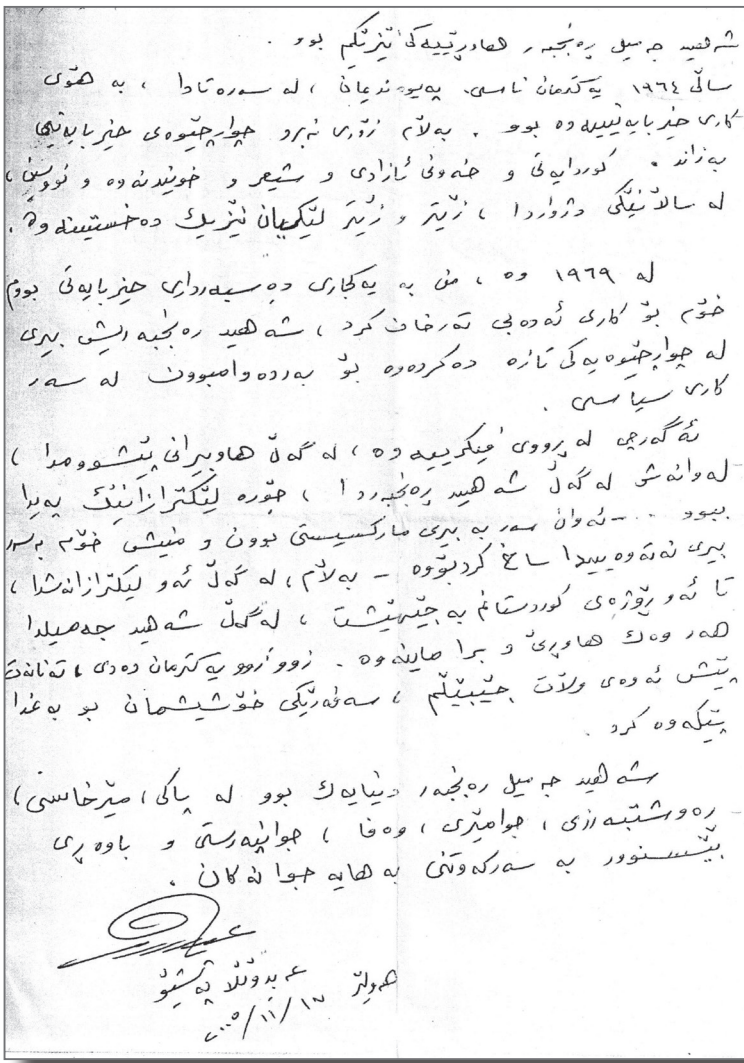 شەهید جەمیل ڕەنجبەر هاوڕێیەکی نزیکم بوو.
ساڵی ١٩٦٤ یەکترمان ناسی. پەیوەندیمان، لە سەرەتادا، بە هۆی
کاری حیزبایەتییەوە بوو. بەڵام زۆری نەبرد چوارچێوەی حیزبایەتیی
بەزاند. کوردایەتی و خەونی ئازادی و شیعر و خوێندنەوە و نووسین،
لە ساڵانێکی دژواردا، زێتر و زێتر لێکیان نزیک دەخستینەوە.
لە ١٩٦٩ وە، من بە یەکجاری دەسبەرداری حیزبایەتی بووم
خۆم بۆ کاری ئەدەبی تەرخان کرد، شەهید رەنجبەریش بیری
لە چوارچێوەیەکی تازە دەکردەوە بۆ بەردەوامبوون لە سەر
کاری سیاسی.
ئەگەرچی لە ڕووی فیکرییەوە، لەگەڵ هاوبیرانی پێشوومدا،
لەوانەش لەگەڵ شەهید ڕەنجبەردا، جۆرە لێکترازانێک پەیدا
ببوو ... ئەوان سەر بە بیری مارکسیستی بوون و منیش خۆم بەسەر
بیری نەتەوەییدا ساغ کردبۆوە – بەڵام، لەگەڵ ئەو لێکترازانەشدا،
تا ئەو ڕۆژەی کوردستانم بەجێهێشت، لەگەڵ شەهید جەمیلدا
هەر وەک هاوڕێ و برا ماینەوە. زوو زوو یەکترمان دەدی، تەنانەت
پێش ئەوەی وڵات جێبێڵم، سەفەرێکی خۆشیشمان بۆ بەغدا
پێکەوە کرد.
شەهید جەمیل رەنجبەر دنیایەک بوو لە پاکی، مێرخاسی،
رەوشتبەرزی، جوامێری، وەفا، جوانپەرستی و باوەڕی
بێسنوور بە سەرکەوتنی بەهایە جوانەکان.
عەبدوڵڵا پەشێو
هەولێر
٢٠٠٥/١١/١٧